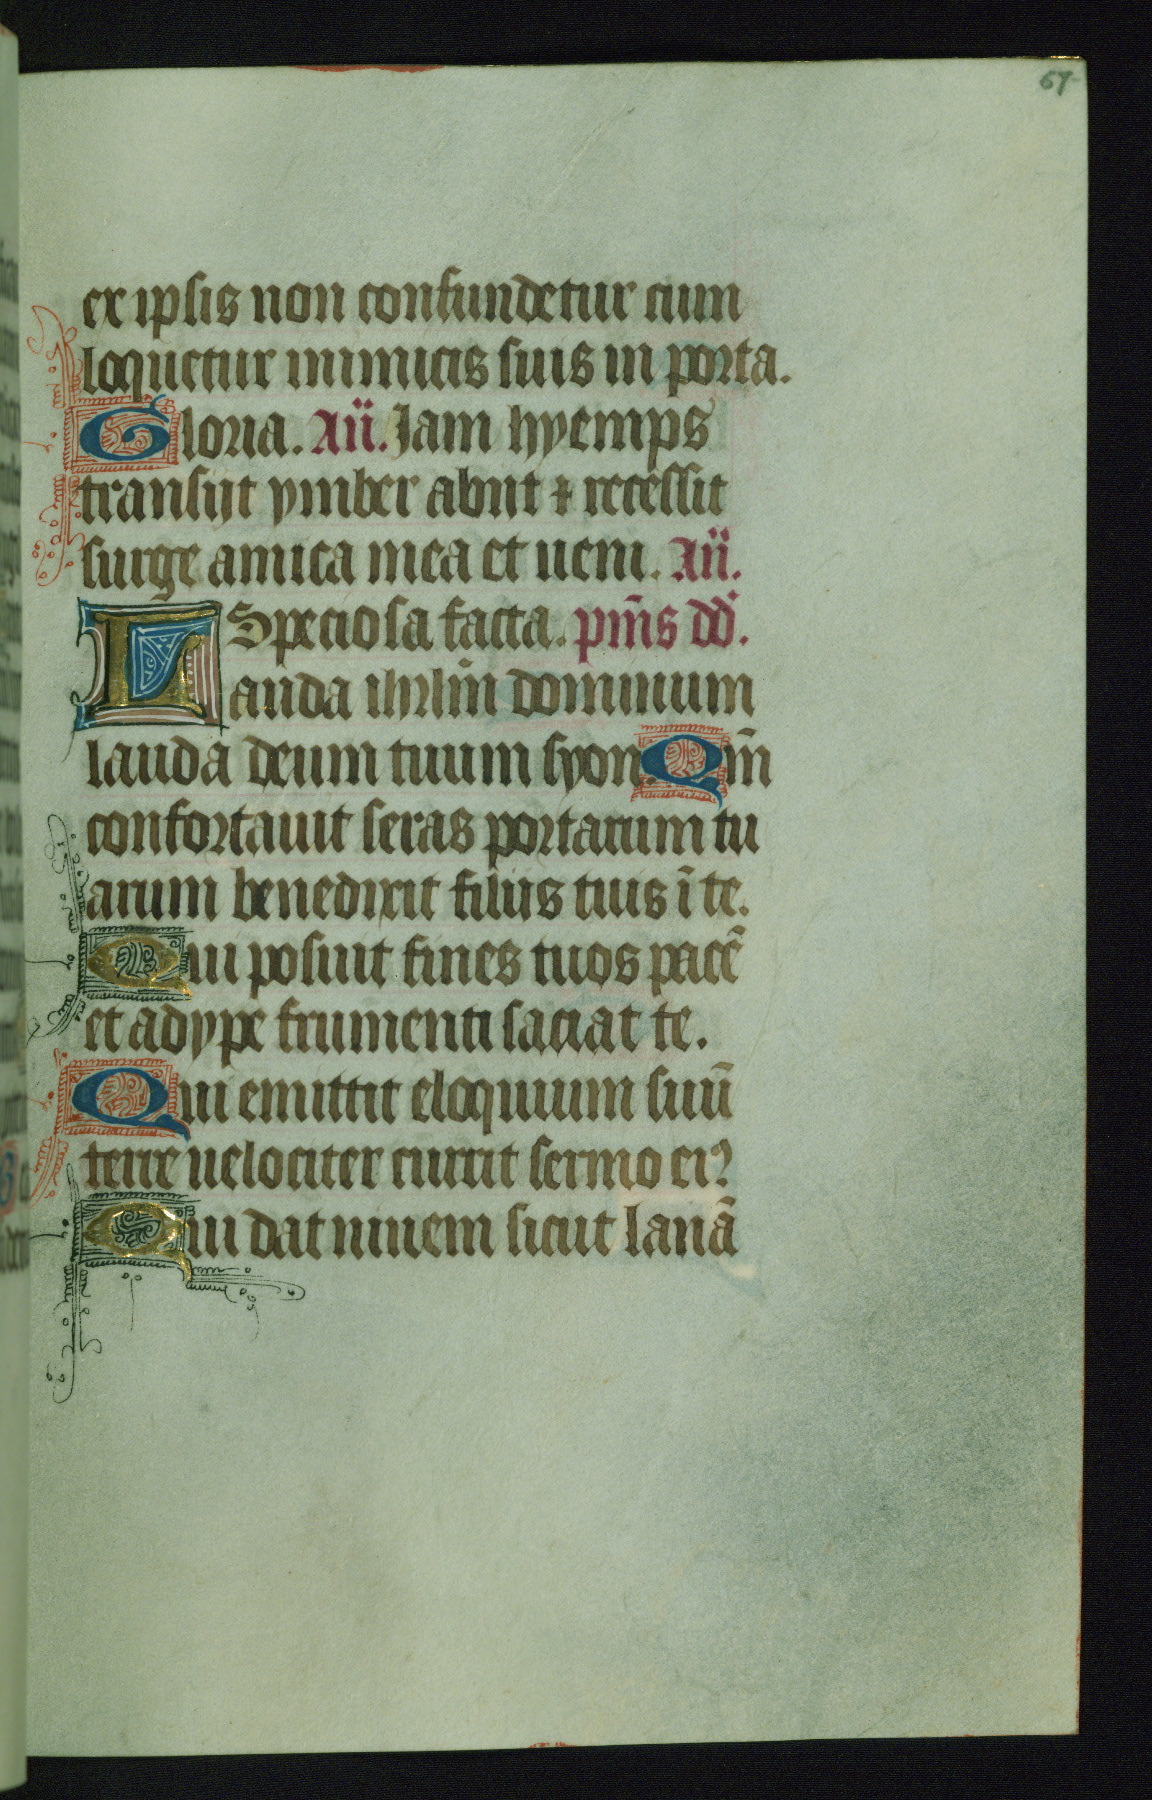 67
ex ipsis non confundetur cum
loquetur inimicis suis in porta.
Gloria. Añ. Jam hyemps
transijt ymber abijt ⁊ recessit
surge amica mea et ueni. Añ.
Speciosa facta. pm̄s dd̉.
Lauda ihrlm̄ dominum
lauda deum tuum syon. Qm̄
confortauit seras portarum tu
arum benedixit filijs tuis ī te.
Qui posuit fines tuos pacē
et adype frumenti saciat te.
Qui emittit eloquium suū
terre uelociter currit sermo eiꝰ
Qui dat niuem sicut lanā